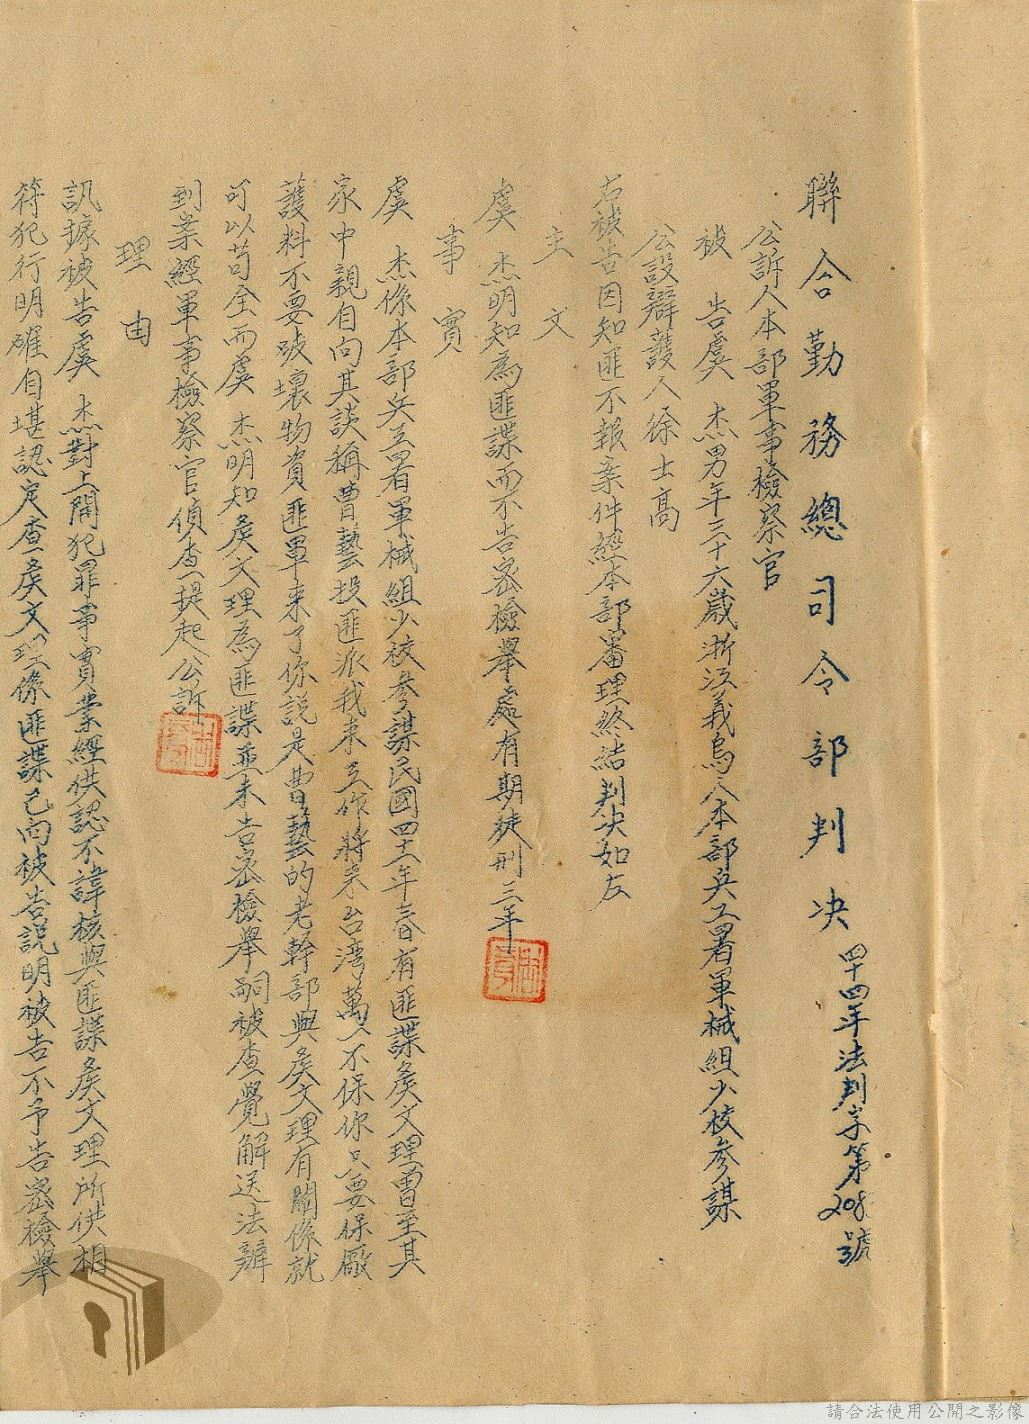 聯合勤務總司令部判決
四十四年法判字第208號
公訴人本部軍事檢察官
被 告虞 杰男年三十六歲浙江義烏人本部兵工署軍械組少校參謀
公設辯護人徐士高
右被告因知匪不報案件經本部審理終結判決如左
主 文
虞 杰明知為匪諜而不告密檢舉處有期徒刑三年
事 實
虞 杰係本部兵工署軍械組少校參謀民國四十年春有匪諜侯文理曾至其
家中親自向其談稱曹藝投匪派我來工作將來台湾萬一不保你只要保廠
護料不要破壞物資匪軍來了你說是曹藝的老幹部與侯文理有關係就
可以苟全而虞 杰明知侯文理為匪諜並未告密檢舉嗣被查覺解送法辦
到案經軍事檢察官偵查提起公訴
理 由
訊據被告虞 杰對上開犯罪事實業經供認不諱核與匪諜侯文理所供相
符犯行明確自堪認定查侯文理係匪諜已向被告說明被告不予告密檢舉
請合法使用公開之影像